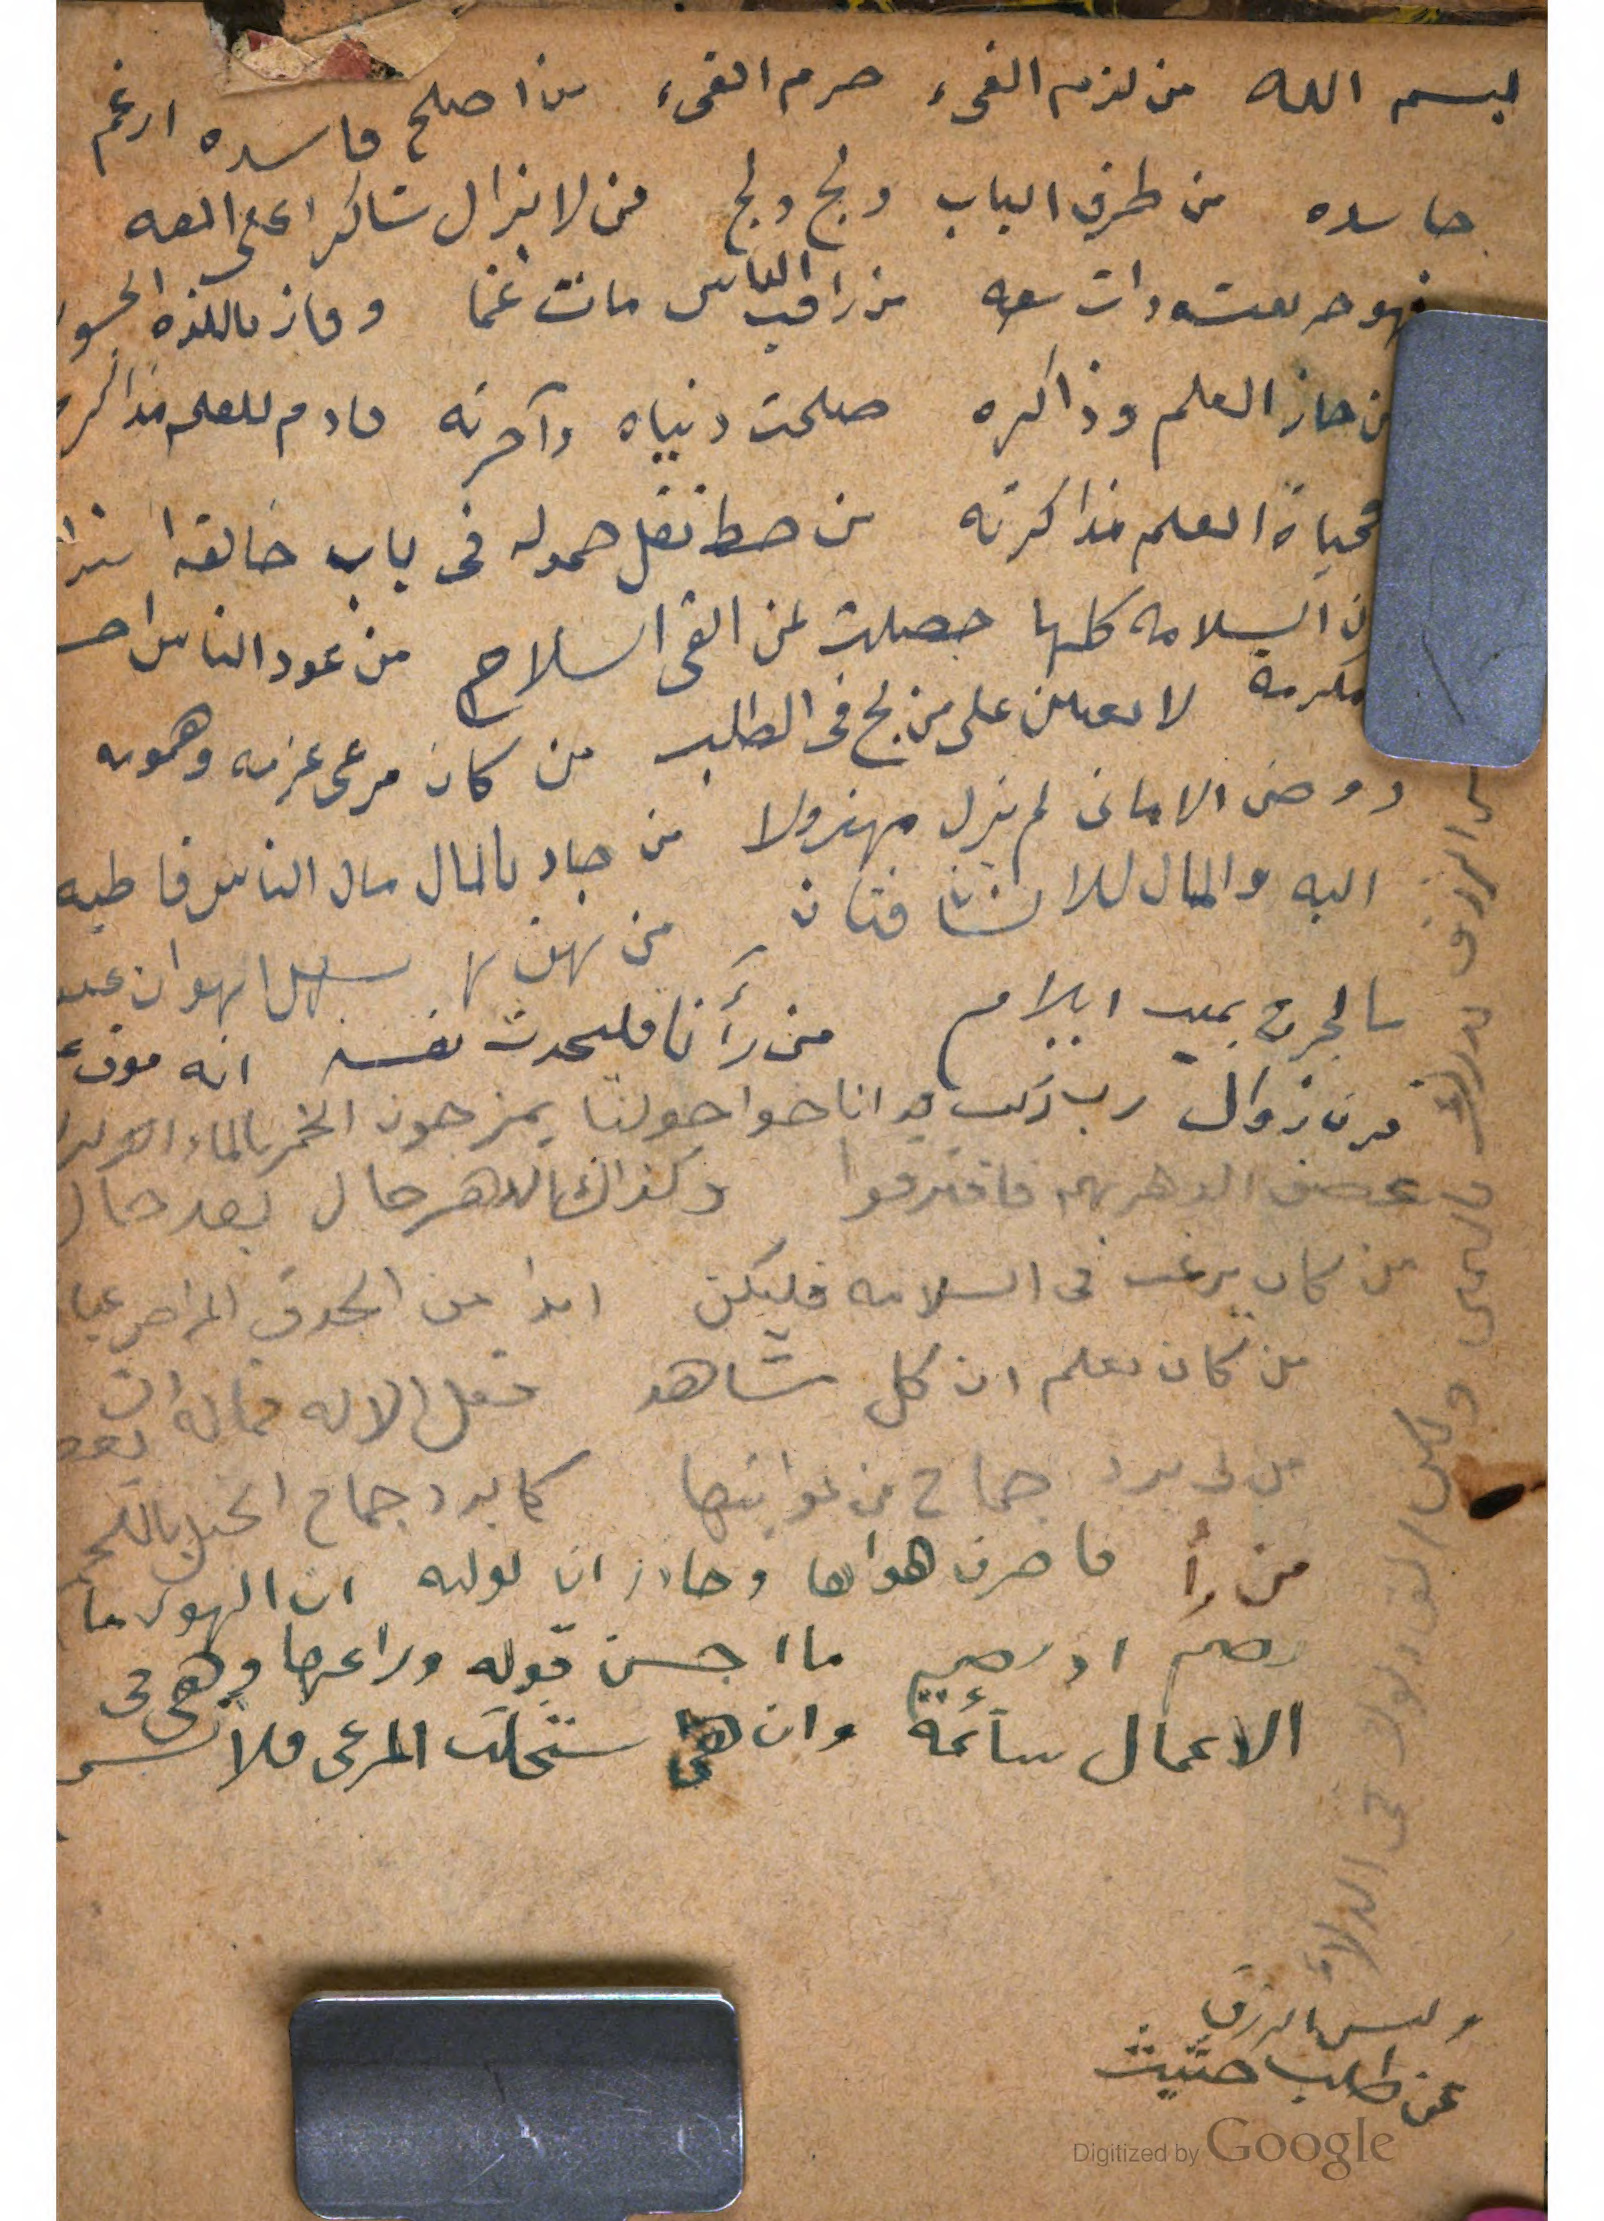 بسم الله من لزم الفىء حرم الفىء من اصلح فاسده ارغم
حاسده من طرق الباب ولج ولج من لا يزال شاكرا على المعه
فهو حر بعيشه ذات سعه من راقب الناس مات غما وفاز باللذه الجسور
من حاز العلم وذاكره صلحت دنياه وآخرته فادم للعلم مذاكره
فحياة العلم مذاكرته من حط ثقل حموله فى باب خالقه
ان السلامه كلها حصلت لمن القى السلاح من عود الناس
مكرمة لا على من لج فى الطلب من كان مرعى عزمه وهمومه
روض الامانى لم يزل مهزولا من جاد بالمال مال الناس قاطبه
اليه والمال للانسان فتان من يهن سهل الهوان عليه
ما لجرح بميت ايلام من رأنا فليحدث نفسه انه موف
قرن زوال رب ركب قد اناخوا حولنا يمزجون الخمر بالماء الزلال
عصف الدهر بهم فافترقوا وكذاك الدهر حال بعد حال
من كان يرغب فى السلامه فليكن ابدا من الحدق المراض
من كان يعلم ان كل شاهد فعل الاله فما له ان
من لى برد جماح من غوايتها كما يرد جماح الخيل باللجم
من رأ فاصرف هواها وحاذر ان توليه ان الهوى ما
يصم او يصم ما احسن قوله وراعها وهى فى
الاعمال سائمة وان هى ستحلت المرعى فلا تسم
وليس الرزق
عن طلب حثيث
ولكن الق دلوك فى الدلاء